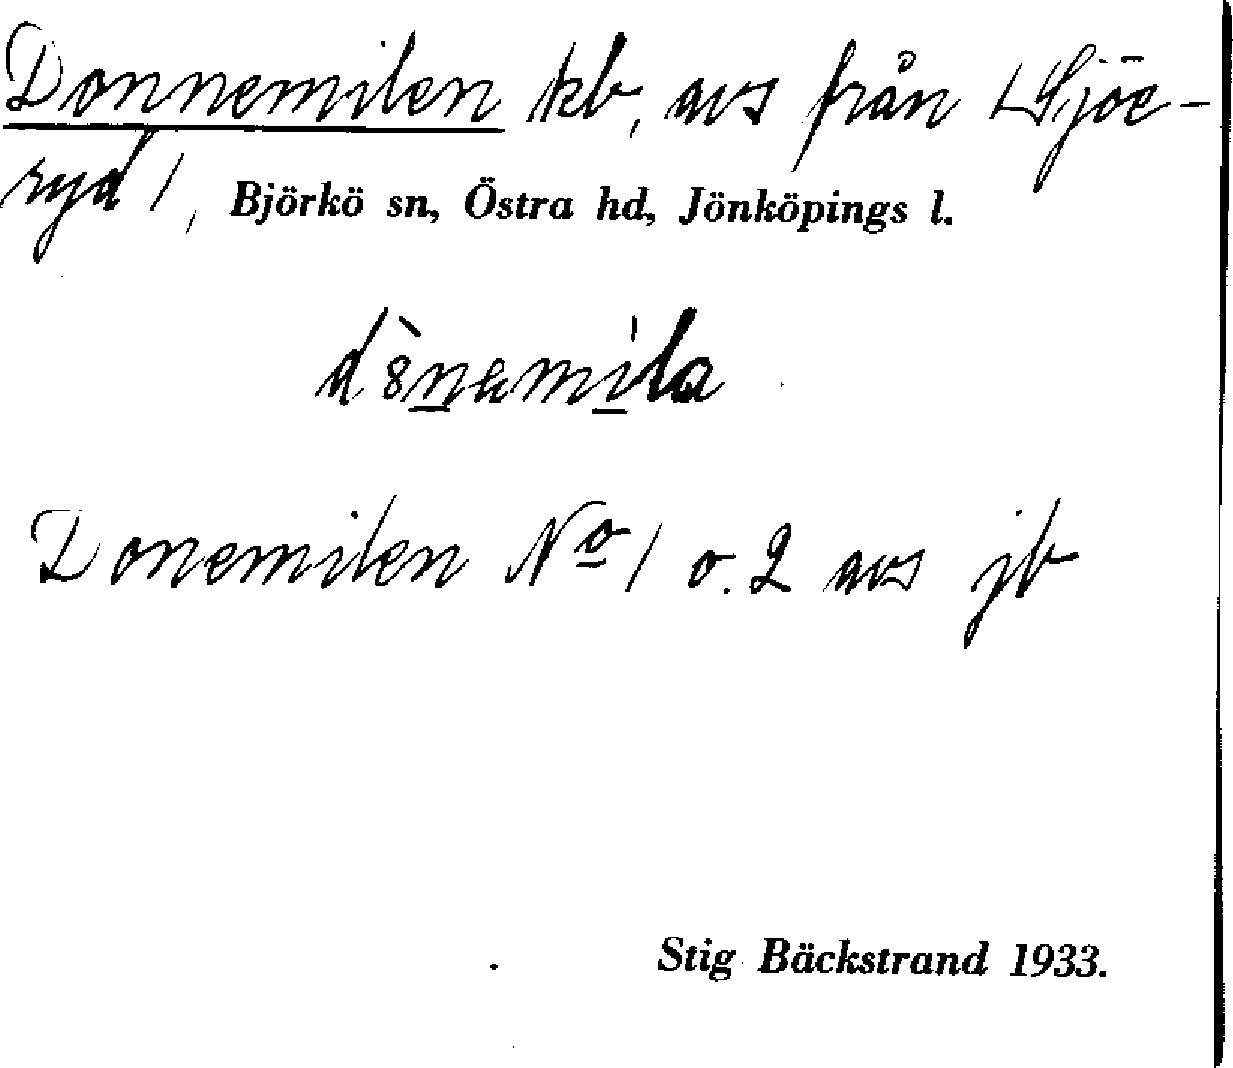 Donnemilen kb, avs från Sjöe-
ryd 1, Björkö sn, Östra hd, Jönköpings l.
Donemilen No 1 o. 2 avs jb
Stig Bäckstrand 1933.